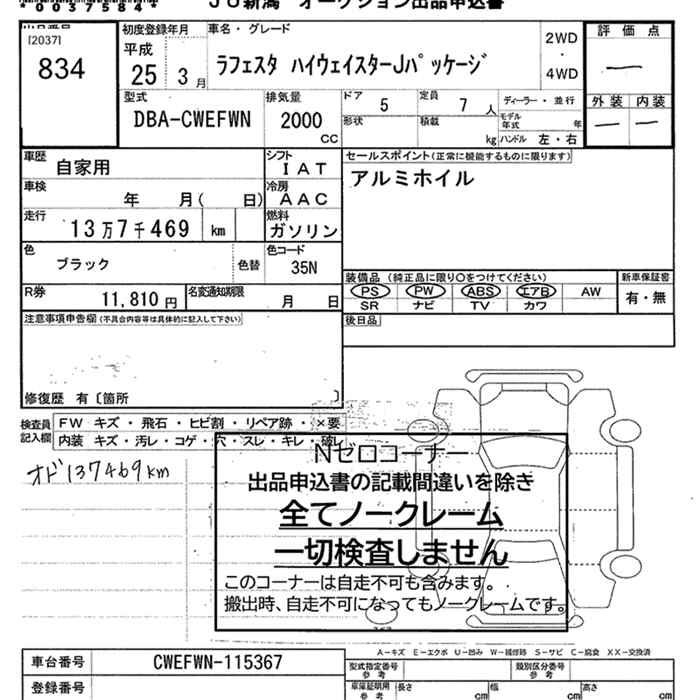 *0037584*
JU新潟 オークション出品申込書
[2037]
834
初度登録年月
平成
25 3 月
車名・グレード
ラフェスタ ハイウェイスターJパッケージ
2WD
・
4WD
評価点
―
外装 内装
― ―
型式
DBA-CWEFWN
排気量
2000
CC
ドア 5
定員 7 人
形状
積載 kg
ディーラー・並行
モデル年式 年
ハンドル 左・右
車歴 自家用
シフト
IAT
車検 年 月( 日)
冷房
AAC
走行 13万7千469 km
燃料
ガソリン
色 ブラック 色替
色コード
35N
R券 11,810 円
名変通知期限 月 日
セールスポイント(正常に機能するものに限ります)
アルミホイル
装備品 (純正品に限り○をつけてください)
PS PW ABS エアB AW
SR ナビ TV カワ
新車保証書
有・無
後日品
注意事項申告欄(不具合内容等は具体的に記入して下さい)
修復歴 有〔箇所 〕
検査員
記入欄
FW キズ・飛石・ヒビ割・リペア跡・×要
内装 キズ・汚レ・コゲ・穴・スレ・キレ・破レ
オド137469km
Nゼロコーナー
出品申込書の記載間違いを除き
全てノークレーム
一切検査しません
このコーナーは自走不可も含みます。
搬出時、自走不可になってもノークレームです。
A-キズ E-エクボ U-凹み W-補修跡 S-サビ C-腐食 XX-交換済
車台番号 CWEFWN-115367
登録番号
型式指定番号
参考
類別区分番号
参考
車庫証明用
参考
長さ cm
幅 cm
高さ cm